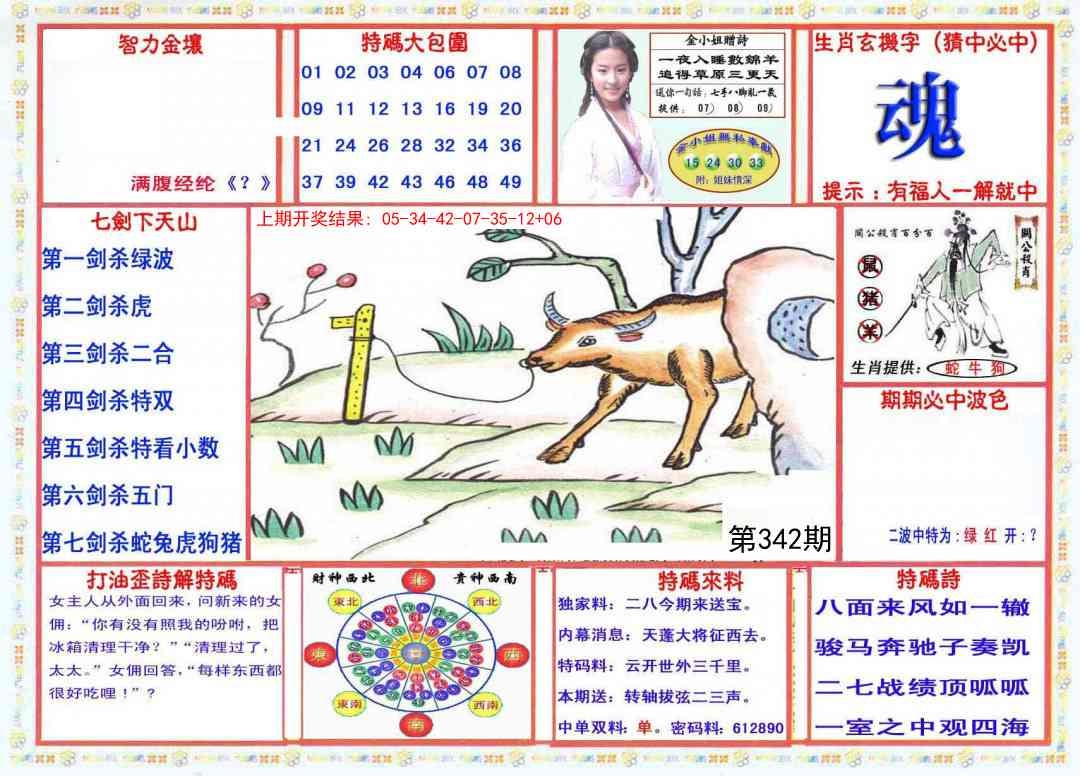 智力金壤
满腹经纶《？》
特碼大包圍
01 02 03 04 06 07 08
09 11 12 13 16 19 20
21 24 26 28 32 34 36
37 39 42 43 46 48 49
金小姐贈詩
一夜入睡數錦羊
追得草原三更天
送你一句話：七手八脚亂一氣
提供：07) 08) 09)
金小姐無私奉獻
15 24 30 33
附：姐妹情深
生肖玄機字（猜中必中）
魂
提示：有福人一解就中
七劍下天山
第一剑杀绿波
第二剑杀虎
第三剑杀二合
第四剑杀特双
第五剑杀特看小数
第六剑杀五门
第七剑杀蛇兔虎狗猪
上期开奖结果：05-34-42-07-35-12+06
第342期
關公殺肖百分百
關公殺肖
鼠
猪
羊
生肖提供：蛇 牛 狗
期期必中波色
二波中特为：绿 红 开：？
打油歪詩解特碼
女主人从外面回来，问新来的女
佣：“你有没有照我的吩咐，把
冰箱清理干净？”“清理过了，
太太。”女佣回答，“每样东西都
很好吃哩！”？
财神西北 贵神西南
北
東北 西北
東 西
東南 西南
南
特碼來料
独家料：二八今期来送宝。
内幕消息：天蓬大将征西去。
特码料：云开世外三千里。
本期送：转轴拔弦二三声。
中单双料：单。密码料：612890
特碼詩
八面来风如一辙
骏马奔驰子奏凯
二七战绩顶呱呱
一室之中观四海